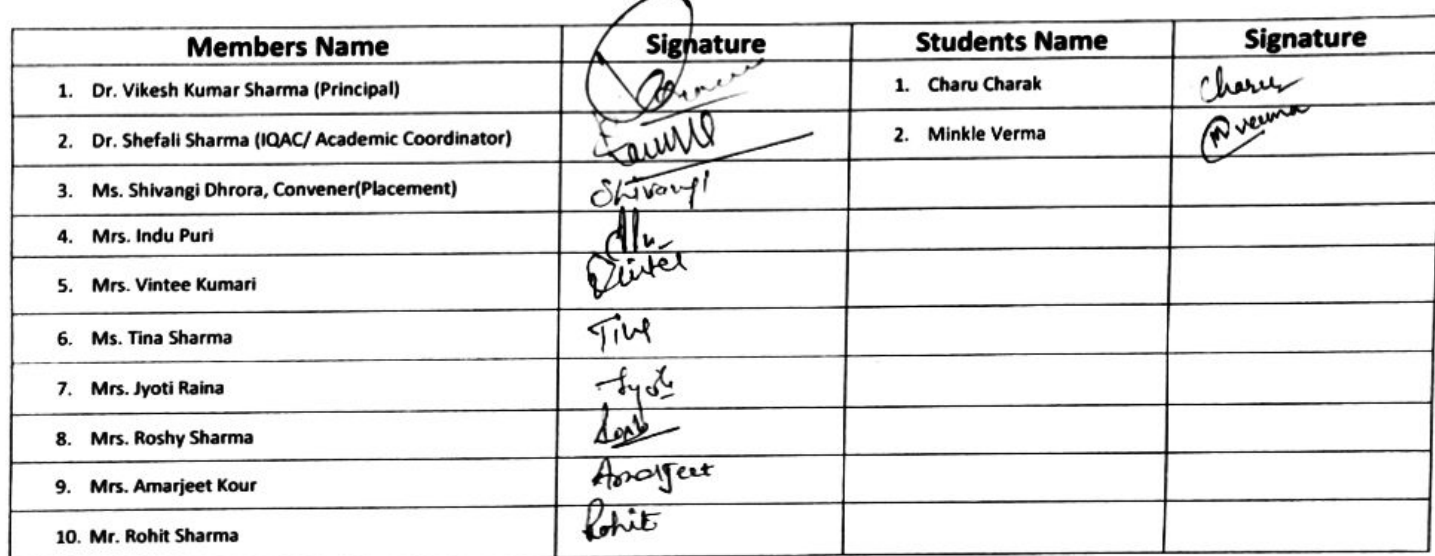 Members Name Signature Students Name Signature
1. Dr. Vikesh Kumar Sharma (Principal) 1. Charu Charak Charu
2. Dr. Shefali Sharma (IQAC/ Academic Coordinator) 2. Minkle Verma Mverma
3. Ms. Shivangi Dhrora, Convener(Placement) Shivangi
4. Mrs. Indu Puri
5. Mrs. Vintee Kumari
6. Ms. Tina Sharma Tina
7. Mrs. Jyoti Raina Jyoti
8. Mrs. Roshy Sharma
9. Mrs. Amarjeet Kour Amarjeet
10. Mr. Rohit Sharma Rohit